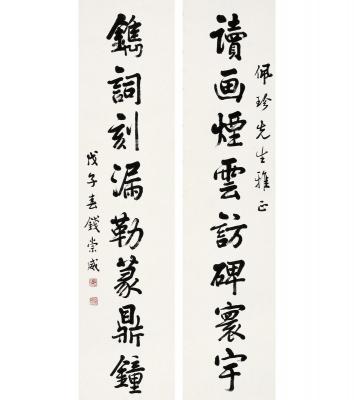 佩珍先生雅正
讀画煙雲訪碑寰宇
鐫詞刻漏勒篆鼎鐘
戊子春錢崇威